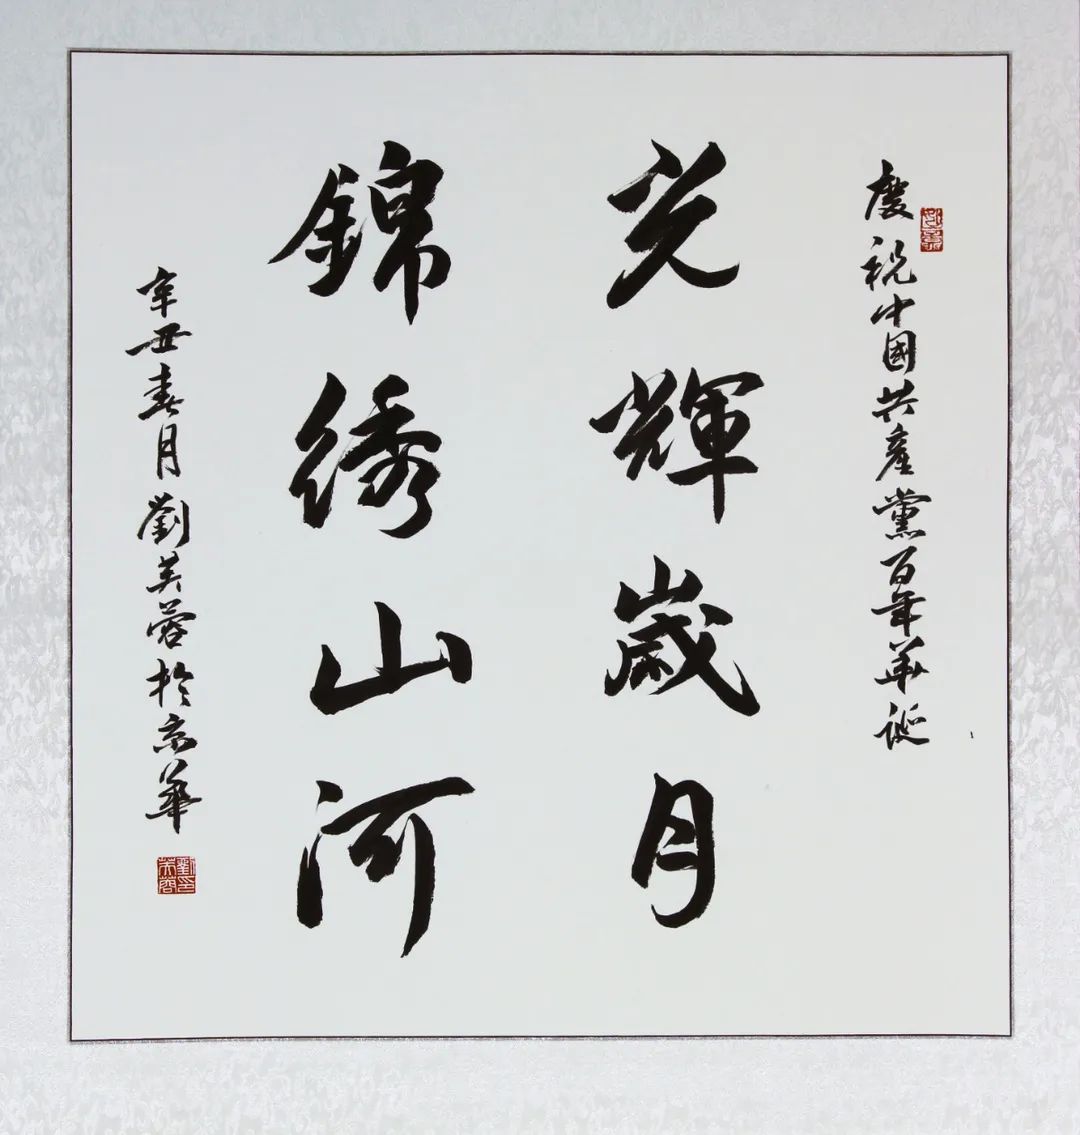 慶祝中國共產黨百年華誕
光輝歲月
錦绣山河
辛丑春月劉芙蓉於京華
劉芙蓉印